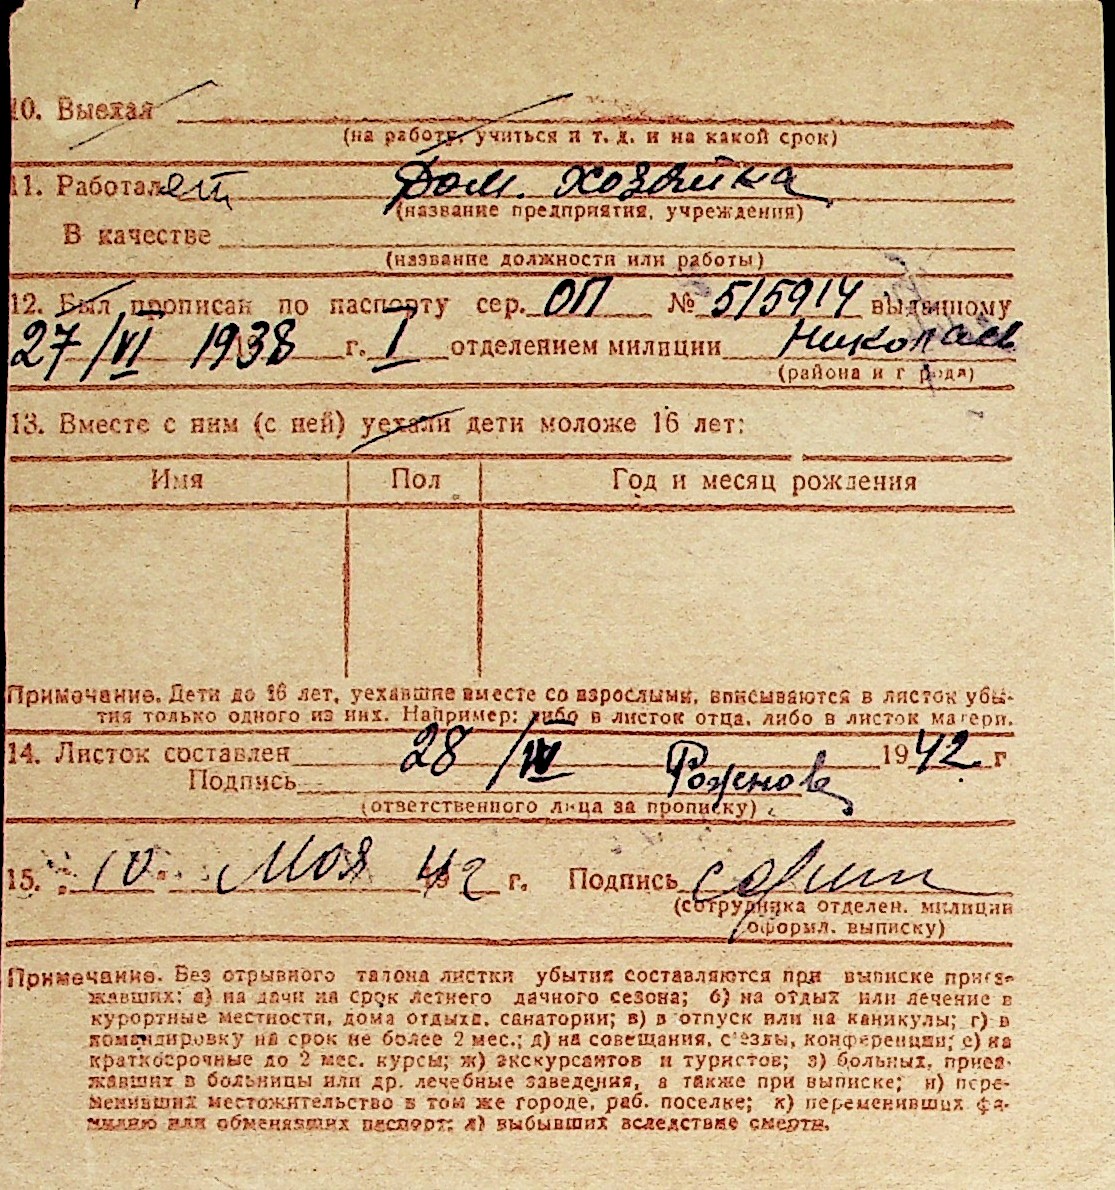 10. Выехал
(на работу, учиться и т. д. и на какой срок)
11. Работает Дом. хозяйка
(название предприятия, учреждения)
В качестве
(название должности или работы)
12. Был прописан по паспорту сер. ОП № 515914 выданному
27/VI 1938 г. I отделением милиции Николаев
(района и города)
13. Вместе с ним (с ней) уехали дети моложе 16 лет:
Имя Пол Год и месяц рождения
Примечание. Дети до 16 лет, уехавшие вместе со взрослыми, вписываются в листок убы-
тия только одного из них. Например: либо в листок отца, либо в листок матери.
14. Листок составлен 28/IV 1942 г
Подпись Роженов
(ответственного лица за прописку)
15. 10 Мая 42 г. Подпись
(сотрудника отделен. милиции
оформл. выписку)
Примечание. Без отрывного талона листки убытия составляются при выписке приез-
жавших: а) на дачи на срок летнего дачного сезона; б) на отдых или лечение в
курортные местности, дома отдыха, санатории; в) в отпуск или на каникулы; г) в
командировку на срок не более 2 мес.; д) на совещания, с'езды, конференции; е) на
краткосрочные до 2 мес. курсы; ж) экскурсантов и туристов; з) больных, приез-
жавших в больницы или др. лечебные заведения, а также при выписке; и) пере-
менивших местожительство в том же городе, раб. поселке; к) переменивших фа-
милию или обменявших паспорт; л) выбывших вследствие смерти.